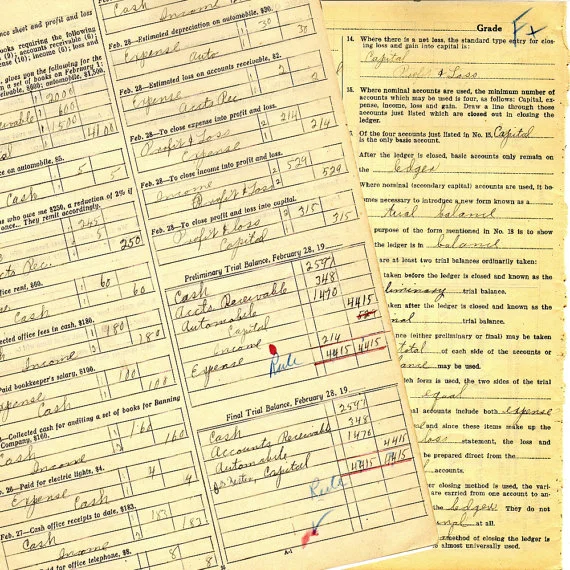 nce sheet and profit and loss
books requiring the following
(9); accounts receivable (6);
ten (10); income (6); loss and
, gloss you the following for the
n a set of books on February 1:
ivable, $600; automobile, $1,500.
2000
600
1500
4100
ce on automobile, $5.
5
5
Cash
us who owe me $250, a reduction of 2% if
ance. They remit accordingly.
245
5
250
ets Rec.
ice rent, $60.
60
60
Cash
lected office fees in cash, $180.
180
180
Income
Paid bookkeeper's salary, $100.
100
100
Expense
Cash
Collected cash for auditing a set of books for Banning
Company, $160.
160
160
Cash
Income
26—Paid for electric lights, $4.
4
4
Expense
Cash
Feb. 27—Cash office receipts to date, $183.
183
183
Cash
Income
paid for office telephone, $8.
8
8
Cash
Income
Feb. 28—Estimated depreciation on automobile, $30.
30
30
Expense
Auto
Feb. 28—Estimated loss on accounts receivable, $2.
2
2
Expense
Accts Rec
Feb. 28—To close expense into profit and loss.
2 214
2 214
Profit & Loss
Expense
Feb. 28—To close income into profit and loss.
2 529
2 529
Income
Profit & Loss
Feb. 28—To close profit and loss into capital.
2 315
2 315
Profit & loss
Capital
Preliminary Trial Balance, February 28, 19
Cash 2597
Accts Receivable 348
Automobile 1470
Capital 4415
Income 529
Expense 214
4415 4415
Rule
Final Trial Balance, February 28, 19
Cash 2597
Accounts Receivable 348
Automobile 1470
Capital 4415
4415 4415
Rule
A-1
Grade F+
14. Where there is a net loss, the standard type entry for clos-
ing loss and gain into capital is:
Capital
Profit & Loss
15. Where nominal accounts are used, the minimum number of
accounts which may be used is four, as follows: Capital, ex-
pense, income, loss and gain. Draw a line through those
accounts just listed which are closed out in closing the
ledger.
Of the four accounts just listed in No. 15, Capital
is the only basic account.
After the ledger is closed, basic accounts only remain on
the Ledger
Where nominal (secondary capital) accounts are used, it be-
comes necessary to introduce a new form known as a
trial balance
purpose of the form mentioned in No. 18 is to show
the ledger is in balance
are at least two trial balances ordinarily taken:
taken before the ledger is closed and known as the
liminary trial balance.
taken after the ledger is closed and known as the
nal trial balance.
nce (either preliminary or final) may be taken
total of each side of the accounts or
ance may be used.
tch form is used, the two sides of the trial
equal
al accounts include both expense
and since these items make up the
loss statement, the loss and
be prepared direct from the
accounts.
er closing method is used, the vari-
are carried from one account to an-
the Ledger They do not
nal at all.
method of closing the ledger is
almost universally used.